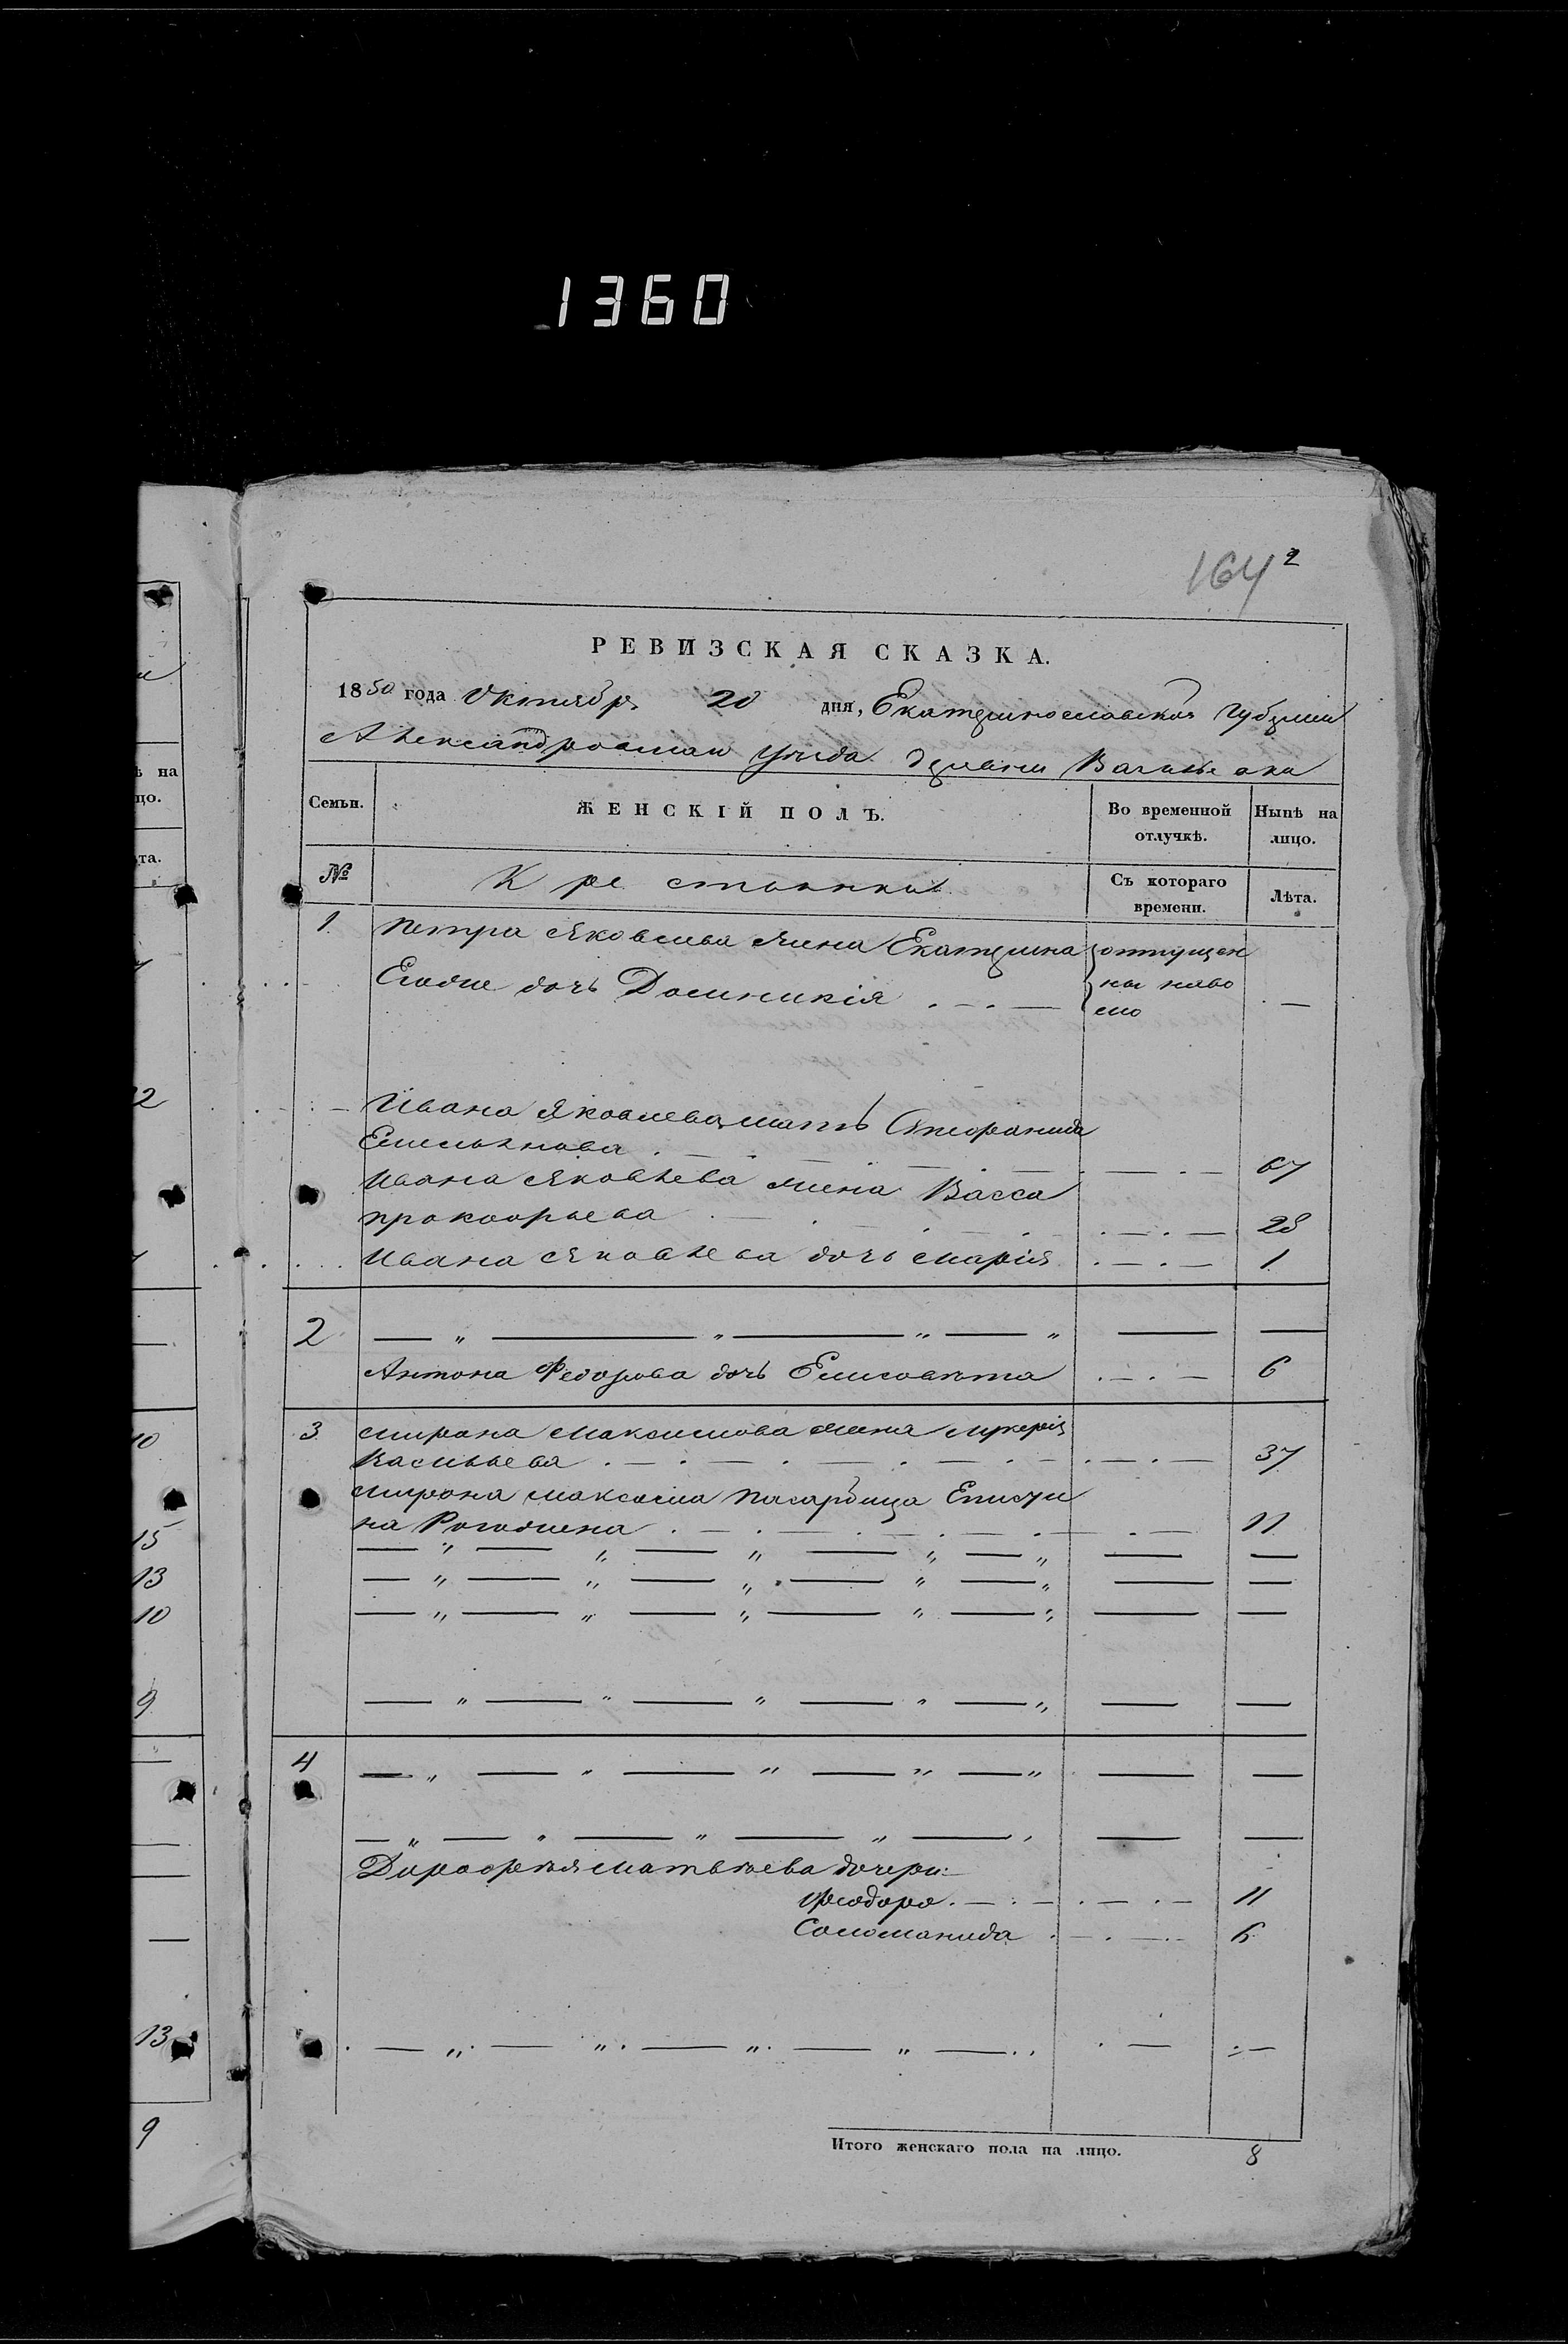 1360
164 2
РЕВИЗСКАЯ СКАЗКА.
1850 года Октября 20 дня, Екатеринославской Губернии
Александровского уезда деревни
Семьи. ЖЕНСКІЙ ПОЛЪ. Во временной отлучкѣ. Нынѣ на лицо.
№ Крестьянки Съ котораго времени. Лѣта.
1. Петра Яковлева жена Екатерина отпущен
Егоже дочь Домникія . — . — ны наво
лю —
Ивана Яковлева мать
Емельянова . — . — . — 67
Ивана Яковлева жена Васса
Прокофьева . — . — . — 28
Ивана Яковлева дочь Марія . — . — 1
2 — „ — „ — „ — „ — —
Антона Федорова дочь Елисавета . — . — 6
3 Мирона Максимова жена Лукерія
Васильева . — . — . — . — 37
Мирона Максима
на . — . — . — . — 11
— „ — „ — „ — „ — „ — —
— „ — „ — „ — „ — „ — —
— „ — „ — „ — „ — „ — —
— „ — „ — „ — „ — „ — —
4 — „ — „ — „ — „ — „ — —
— „ — „ — „ — „ — „ — —
Дорофея Матвѣева дочери:
Феодора . — . — . — 11
Соломанида . — . — 6
. — „ . — „ . — „ . — „ — . . . — . —
Итого женскаго пола на лицо. 8
ѣ на
цо.
ѣта.
22
10
15
13
10
9
13
9